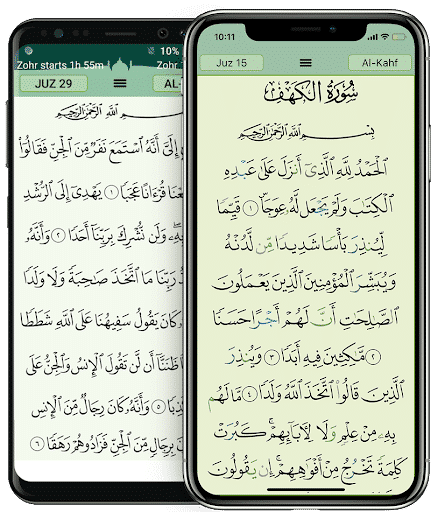 10%
Zohr starts 1h 55m
Zohr
JUZ 29
AL-
بِسْمِ ٱللَّهِ ٱلرَّحْمَٰنِ ٱلرَّحِيمِ
إِلَىَّ أَنَّهُ ٱسْتَمَعَ نَفَرٌ مِّنَ ٱلْجِنِّ فَقَالُوٓا۟
عْنَا قُرْءَانًا عَجَبًا ١ يَهْدِىٓ إِلَى ٱلرُّشْدِ
بِهِۦ وَلَن نُّشْرِكَ بِرَبِّنَآ أَحَدًا ٢ وَأَنَّهُۥ
دُّ رَبِّنَا مَا ٱتَّخَذَ صَٰحِبَةً وَلَا وَلَدًا
كَانَ يَقُولُ سَفِيهُنَا عَلَى ٱللَّهِ شَطَطًا
ظَنَنَّآ أَن لَّن تَقُولَ ٱلْإِنسُ وَٱلْجِنُّ عَلَى
ذِبًا ٥ وَأَنَّهُۥ كَانَ رِجَالٌ مِّنَ ٱلْإِنسِ
بِرِجَالٍ مِّنَ ٱلْجِنِّ فَزَادُوهُمْ رَهَقًا ٦
10:11
Juz 15
Al-Kahf
سُورَةُ الكَهْفِ
بِسْمِ ٱللَّهِ ٱلرَّحْمَٰنِ ٱلرَّحِيمِ
ٱلْحَمْدُ لِلَّهِ ٱلَّذِىٓ أَنزَلَ عَلَىٰ عَبْدِهِ
ٱلْكِتَٰبَ وَلَمْ يَجْعَل لَّهُۥ عِوَجَا ١ قَيِّمًا
لِّيُنذِرَ بَأْسًا شَدِيدًا مِّن لَّدُنْهُ
وَيُبَشِّرَ ٱلْمُؤْمِنِينَ ٱلَّذِينَ يَعْمَلُونَ
ٱلصَّٰلِحَٰتِ أَنَّ لَهُمْ أَجْرًا حَسَنًا
٢ مَّٰكِثِينَ فِيهِ أَبَدًا ٣ وَيُنذِرَ
ٱلَّذِينَ قَالُوا۟ ٱتَّخَذَ ٱللَّهُ وَلَدًا ٤ مَّا لَهُم
بِهِۦ مِنْ عِلْمٍ وَلَا لِءَابَآئِهِمْ ۚ كَبُرَتْ
كَلِمَةً تَخْرُجُ مِنْ أَفْوَٰهِهِمْ ۚ إِن يَقُولُونَ